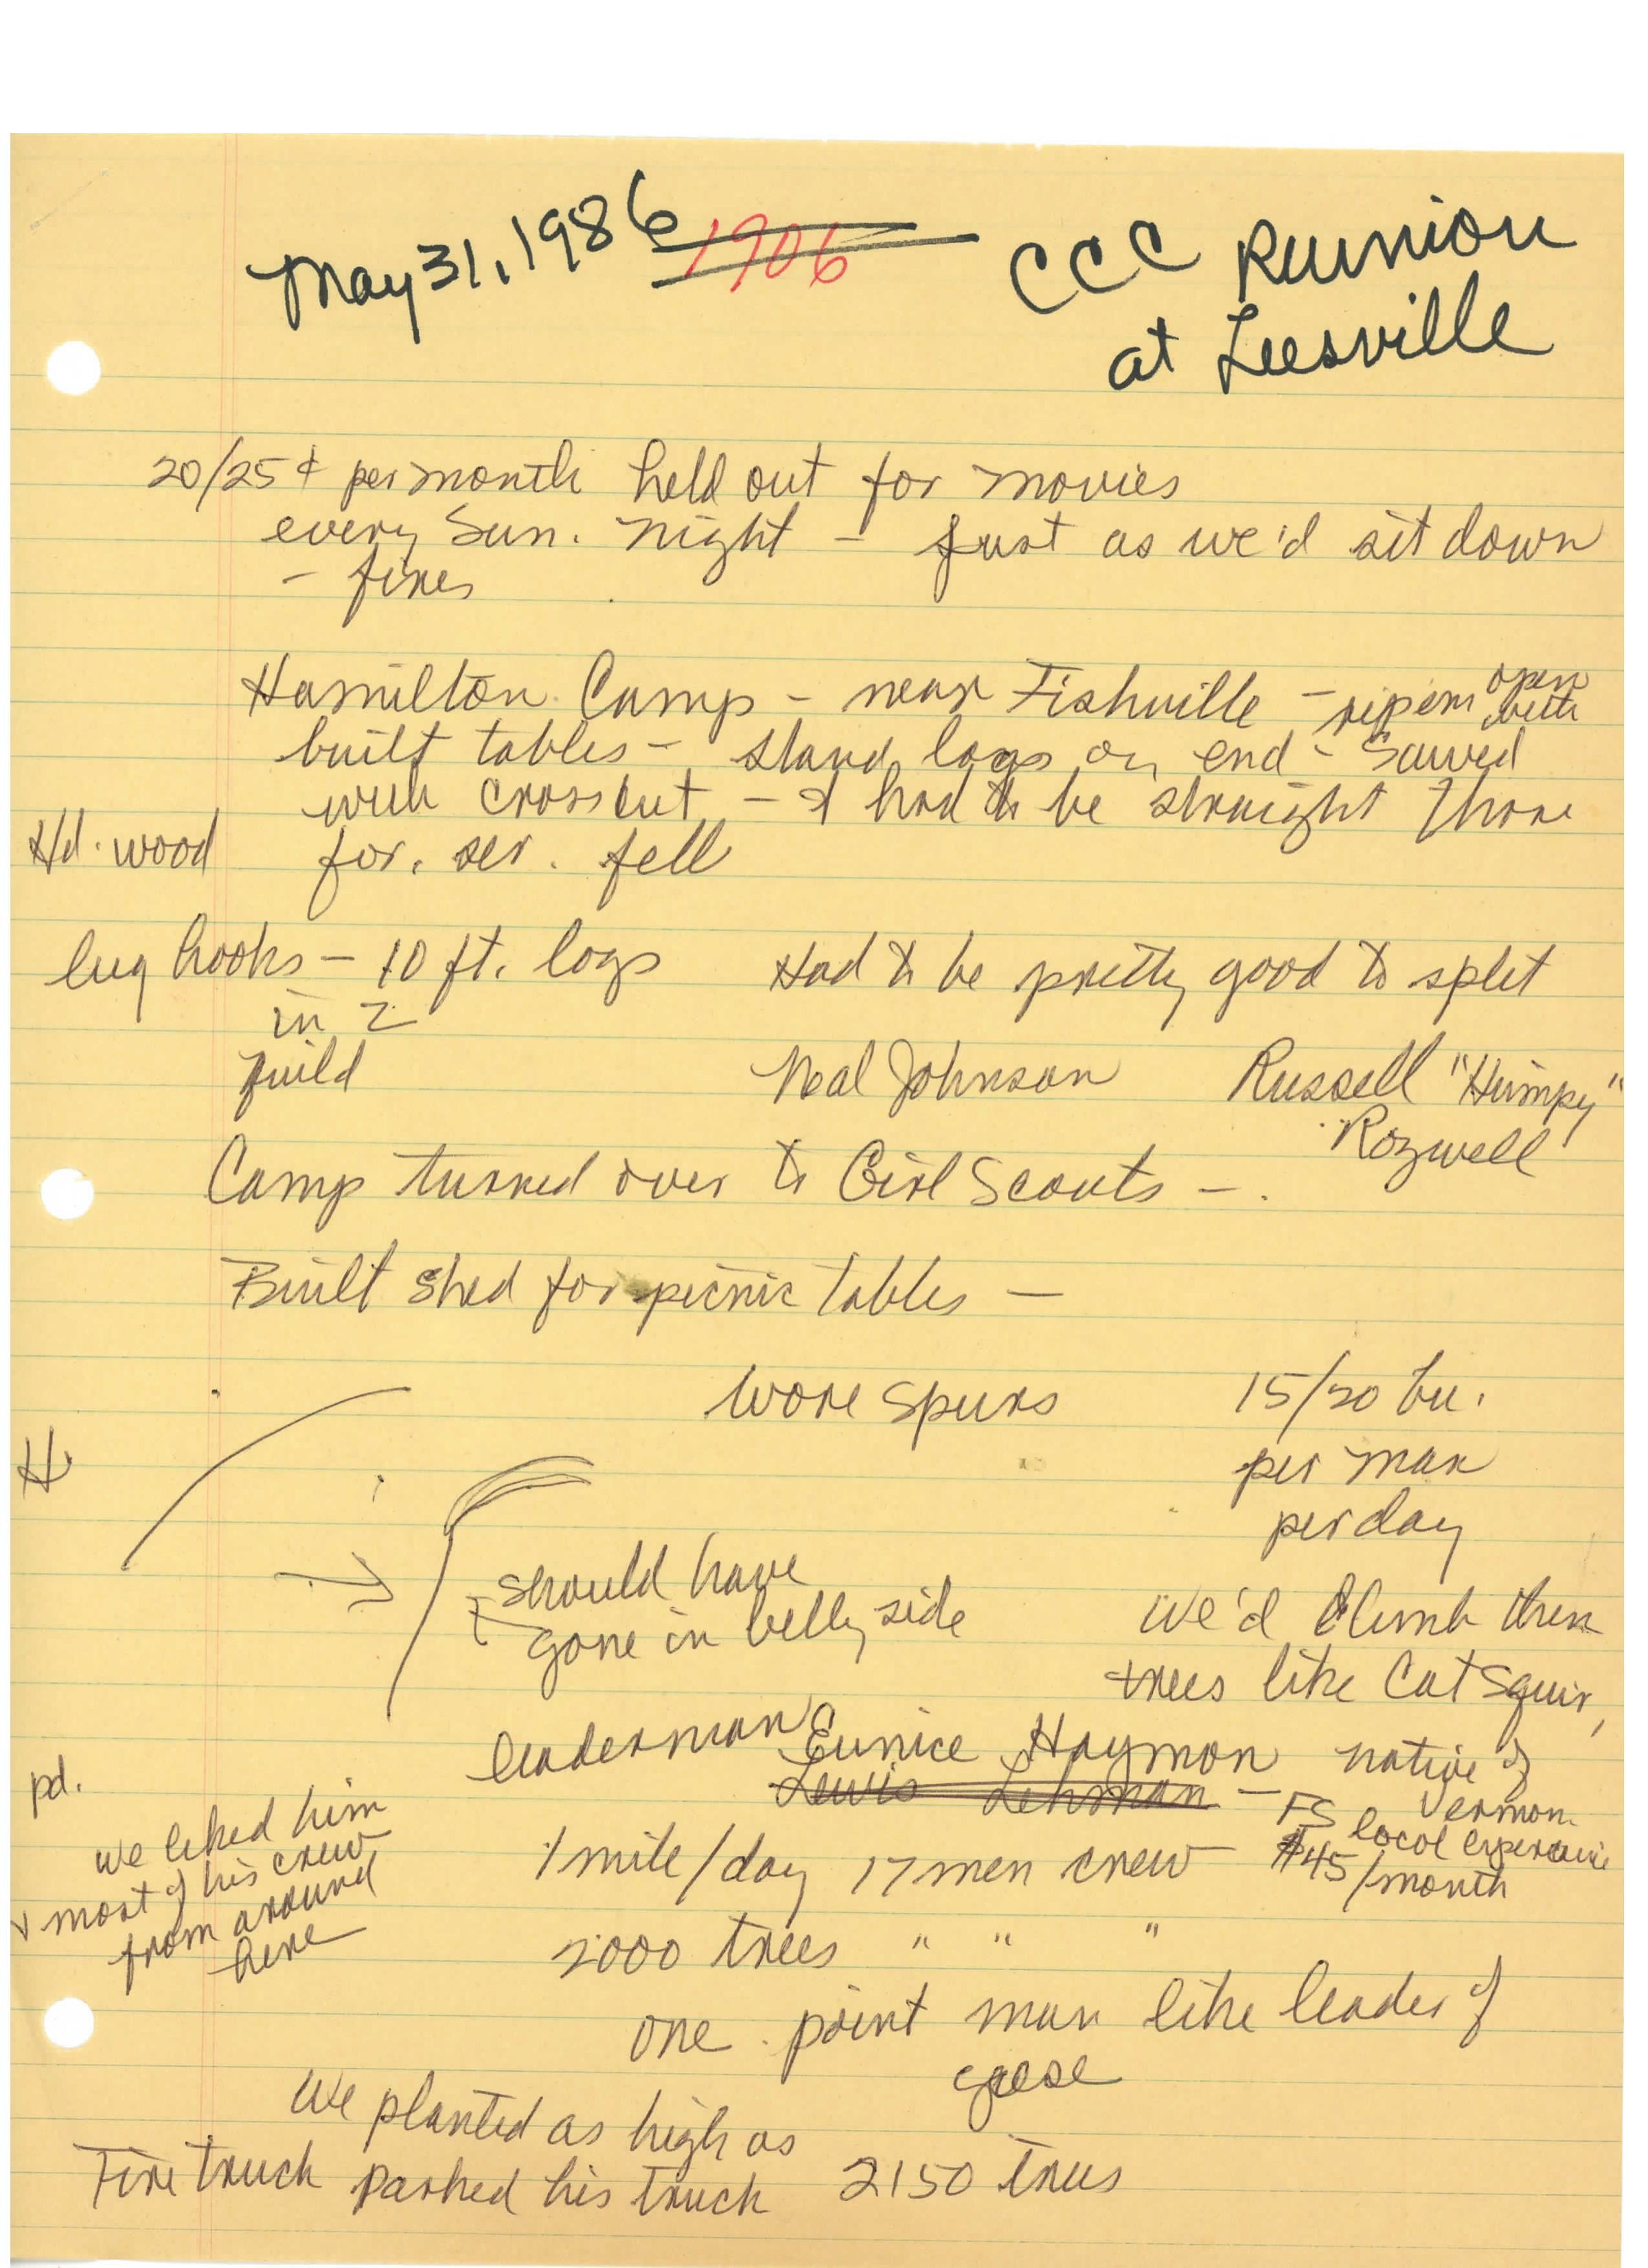 May 31, 1986 1906 CCC Reunion
at Leesville
20/25 ¢ per month held out for movies
every Sun. night - Just as we'd sit down
- fires
Hamilton Camp - near Fishville - rip em open with
built tables - stand logs on end - sawed
with crosscut - & had to be straight those
Hd. wood for. ser. fell
lug hooks - 10 ft. logs Had to be pretty good to split
in 2
build Neal Johnson Russell "Humpy"
Rozwell
Camp turned over to Girl Scouts -
Built shed for picnic tables -
wore spurs 15/20 bu.
H per man
per day
should have
gone in belly side We'd climb them
trees like Cat Squir,
leaderman Eunice Haymon native of
pd. Lewis Lehman - FS Vernon
local experience
we liked him 1 mile/day 17 men crew $45/month
& most of his crew
from around
here
2000 trees " " "
one point man like leader of
geese
We planted as high as
Fire truck parked his truck 2150 trees